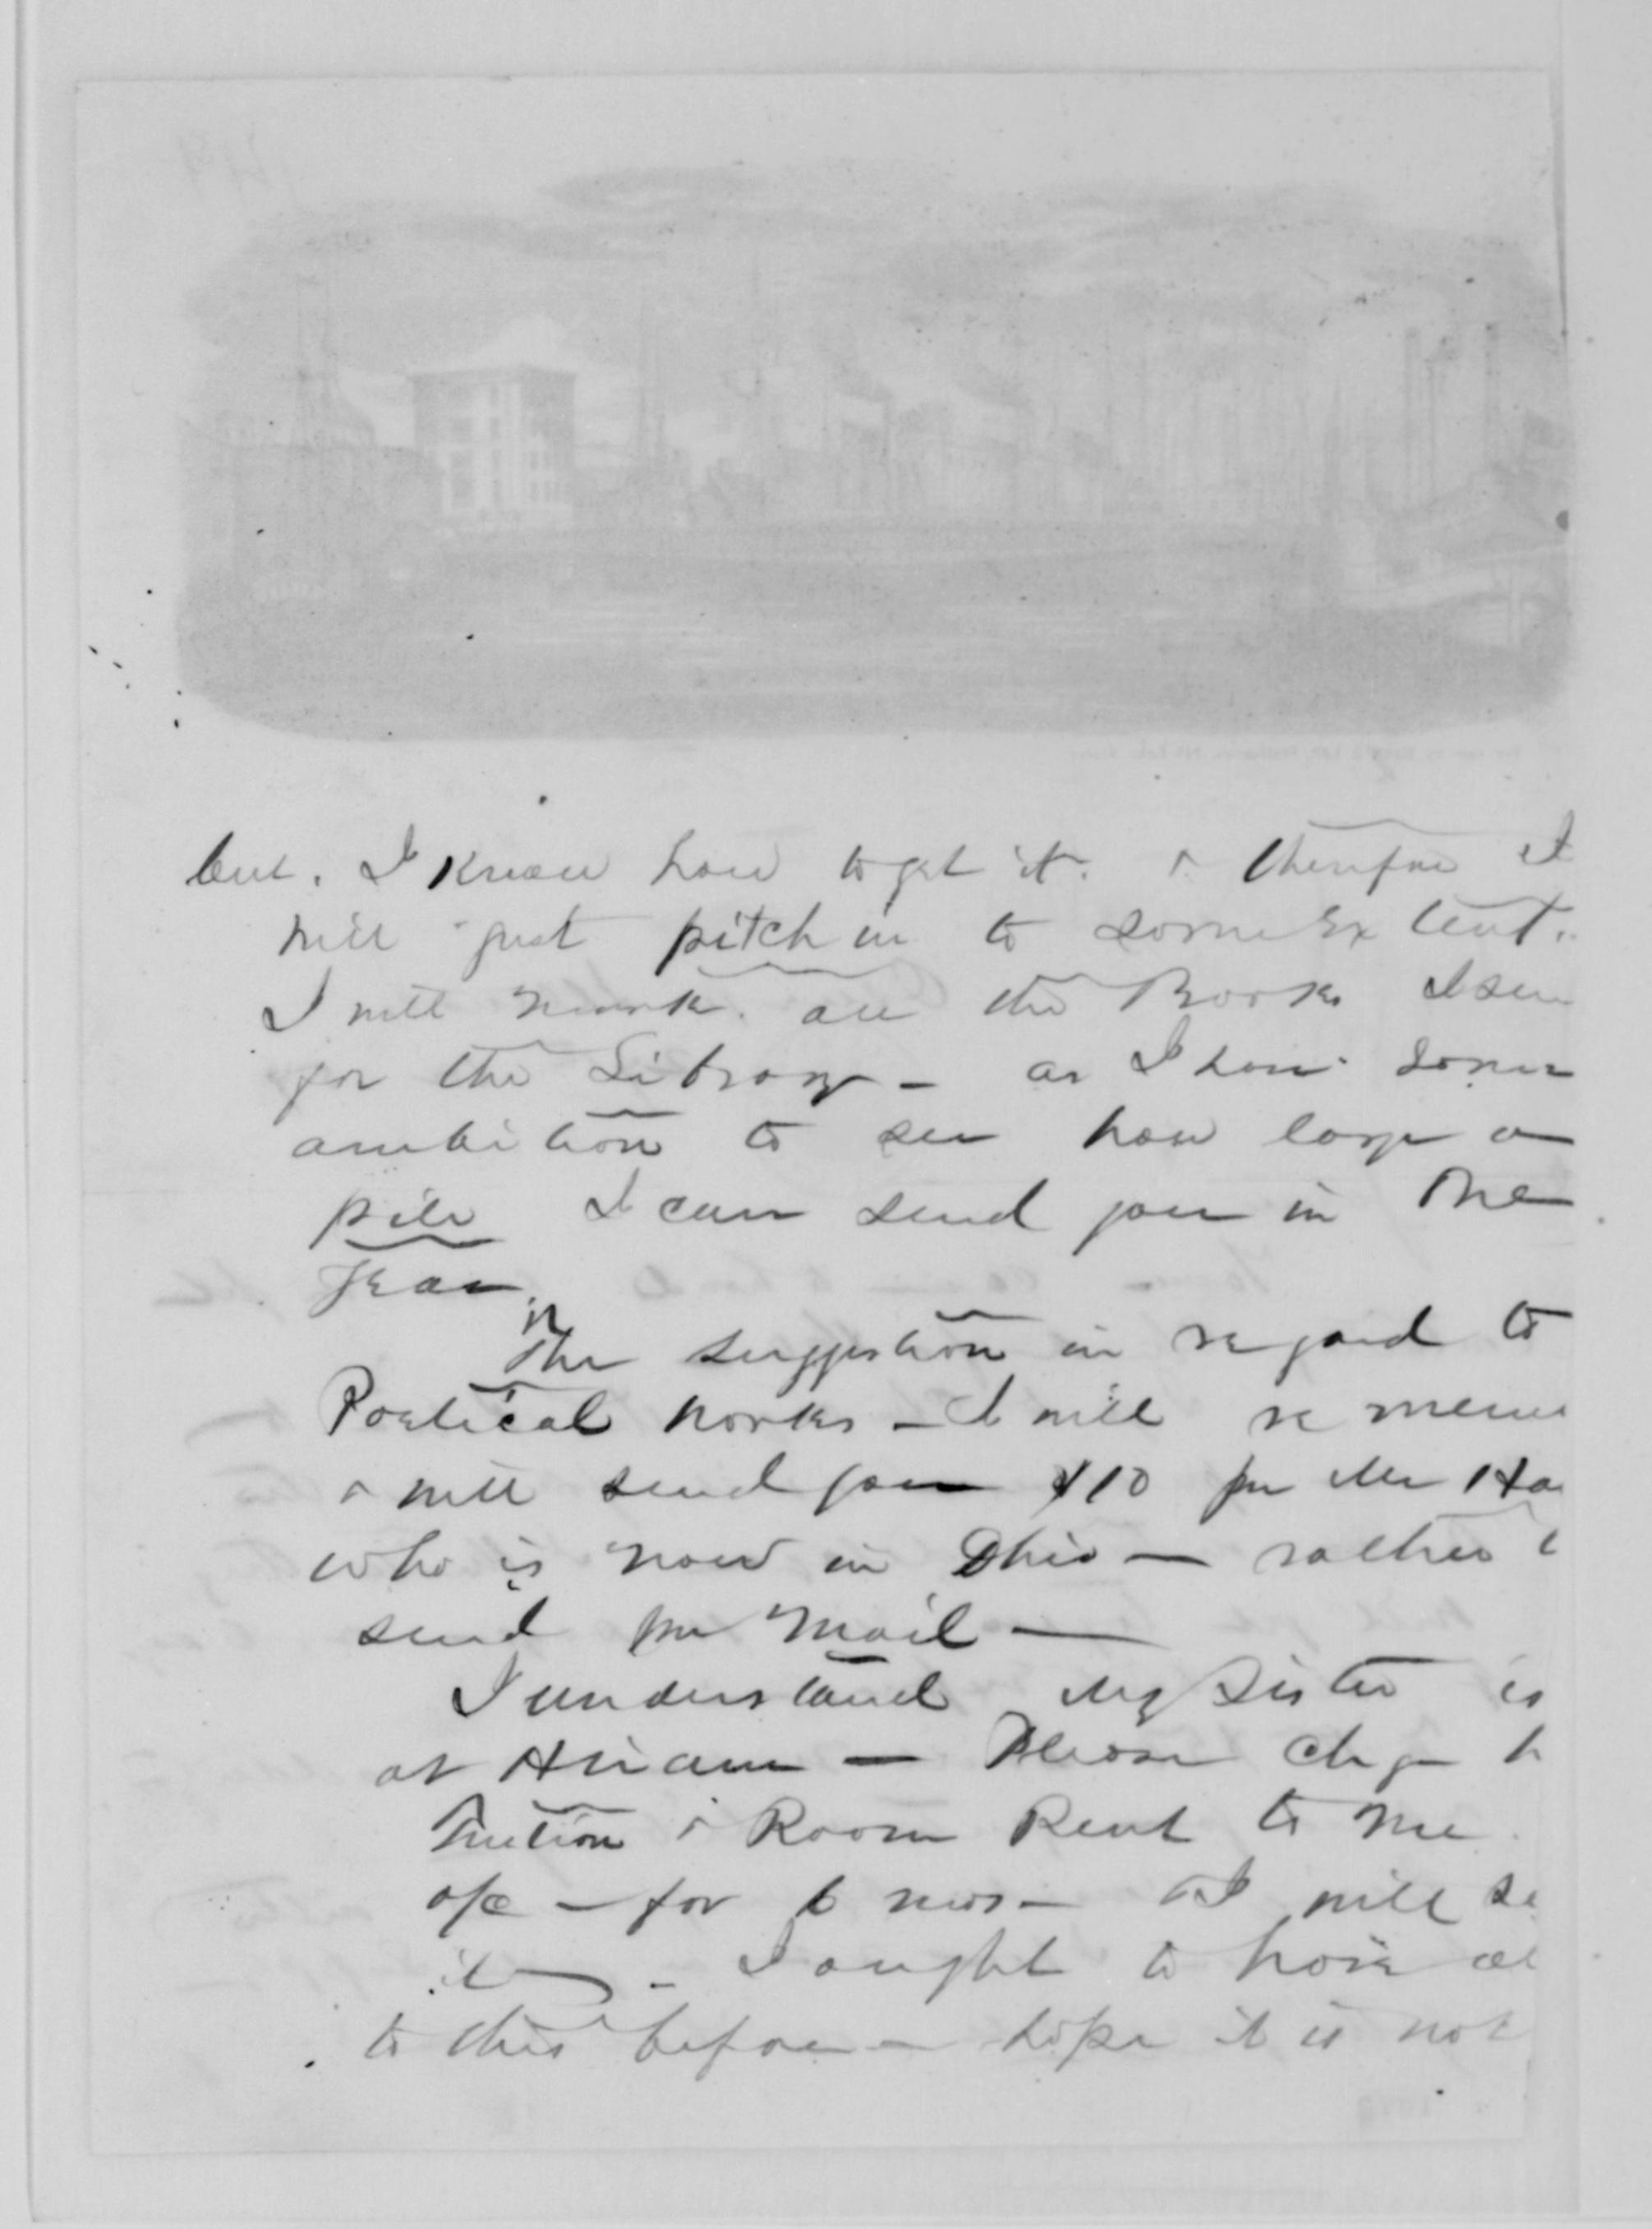 but. I know how to get it. & therefore I
will just pitch in to some Extent.
I will mark. all the Books I sen
for the Library – as I have some
ambition to see how large a
pile I can send you in One
Year.
The suggestion in regard to
Poetical works – I will remem
& will send you $10 per Mr Ha
who is now in Ohio – rather t
send per Mail –
I understand My Sister is
at Hiram – Please chge h
Tuition & Room Rent to me
a/c – for 6 mos – & I will se
it – I ought to have
to this before – hope it is not